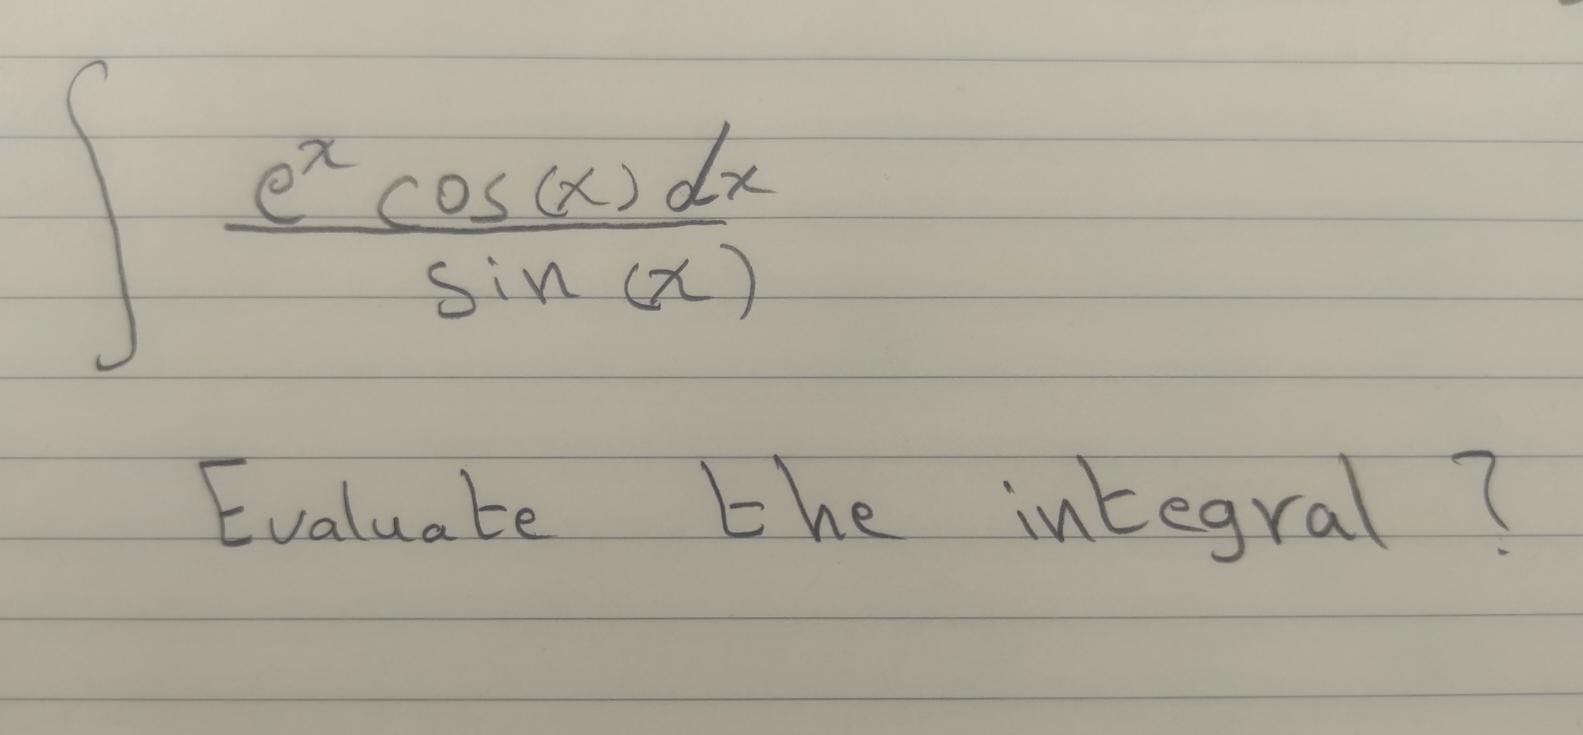 ∫ e^x cos(x) dx
sin(x)
Evaluate the integral?